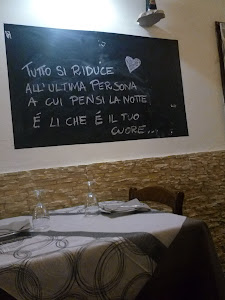 TUTTO SI RIDUCE
ALL'ULTIMA PERSONA
A CUI PENSI LA NOTTE
É LI CHE É IL TUO
CUORE...